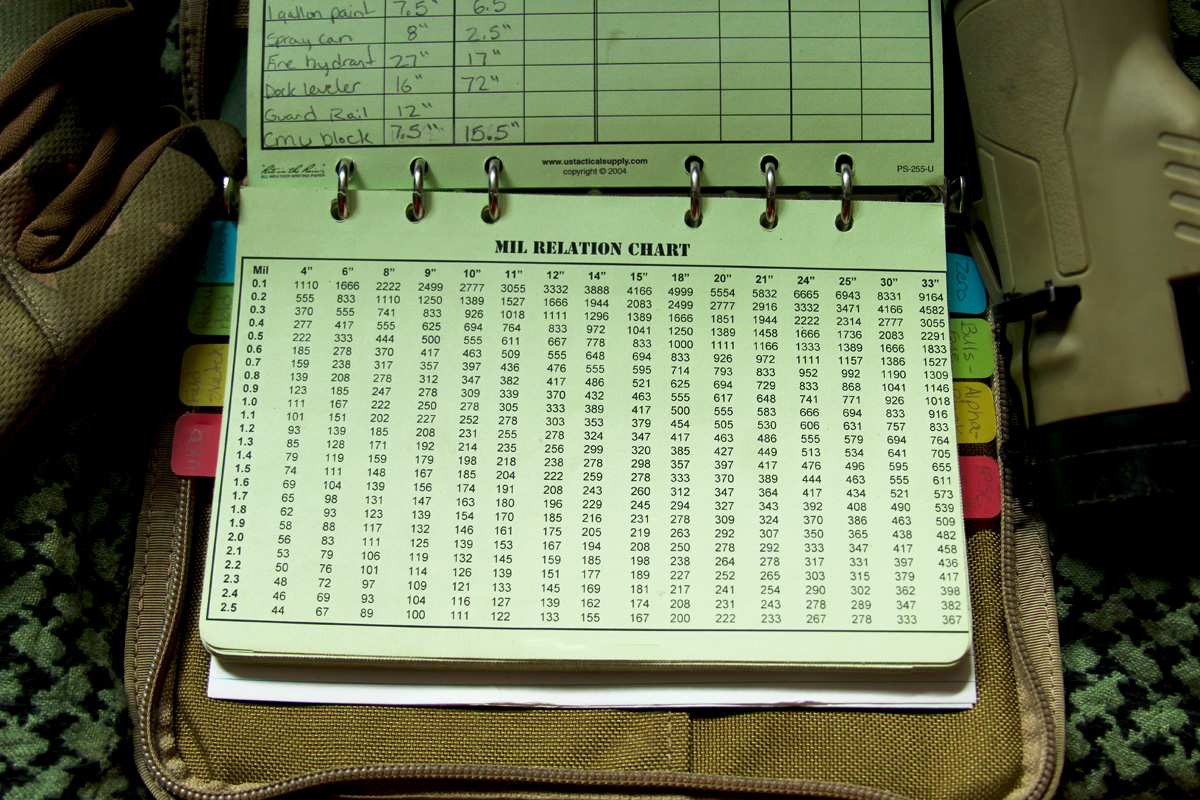 1 gallon paint 7.5" 6.5
Spray can 8" 2.5"
Fire hydrant 27" 17"
Dock leveler 16" 72"
Guard Rail 12"
Cmu block 7.5" 15.5"
Rite in the Rain
ALL-WEATHER WRITING PAPER
www.ustacticalsupply.com
copyright © 2004
PS-255-U
MIL RELATION CHART
Mil 4" 6" 8" 9" 10" 11" 12" 14" 15" 18" 20" 21" 24" 25" 30" 33"
0.1 1110 1666 2222 2499 2777 3055 3332 3888 4166 4999 5554 5832 6665 6943 8331 9164
0.2 555 833 1110 1250 1389 1527 1666 1944 2083 2499 2777 2916 3332 3471 4166 4582
0.3 370 555 741 833 926 1018 1111 1296 1389 1666 1851 1944 2222 2314 2777 3055
0.4 277 417 555 625 694 764 833 972 1041 1250 1389 1458 1666 1736 2083 2291
0.5 222 333 444 500 555 611 667 778 833 1000 1111 1166 1333 1389 1666 1833
0.6 185 278 370 417 463 509 555 648 694 833 926 972 1111 1157 1386 1527
0.7 159 238 317 357 397 436 476 555 595 714 793 833 952 992 1190 1309
0.8 139 208 278 312 347 382 417 486 521 625 694 729 833 868 1041 1146
0.9 123 185 247 278 309 339 370 432 463 555 617 648 741 771 926 1018
1.0 111 167 222 250 278 305 333 389 417 500 555 583 666 694 833 916
1.1 101 151 202 227 252 278 303 353 379 454 505 530 606 631 757 833
1.2 93 139 185 208 231 255 278 324 347 417 463 486 555 579 694 764
1.3 85 128 171 192 214 235 256 299 320 385 427 449 513 534 641 705
1.4 79 119 159 179 198 218 238 278 298 357 397 417 476 496 595 655
1.5 74 111 148 167 185 204 222 259 278 333 370 389 444 463 555 611
1.6 69 104 139 156 174 191 208 243 260 312 347 364 417 434 521 573
1.7 65 98 131 147 163 180 196 229 245 294 327 343 392 408 490 539
1.8 62 93 123 139 154 170 185 216 231 278 309 324 370 386 463 509
1.9 58 88 117 132 146 161 175 205 219 263 292 307 350 365 438 482
2.0 56 83 111 125 139 153 167 194 208 250 278 292 333 347 417 458
2.1 53 79 106 119 132 145 159 185 198 238 264 278 317 331 397 436
2.2 50 76 101 114 126 139 151 177 189 227 252 265 303 315 379 417
2.3 48 72 97 109 121 133 145 169 181 217 241 254 290 302 362 398
2.4 46 69 93 104 116 127 139 162 174 208 231 243 278 289 347 382
2.5 44 67 89 100 111 122 133 155 167 200 222 233 267 278 333 367
Zero
Bulls-
Alpha-
UKD